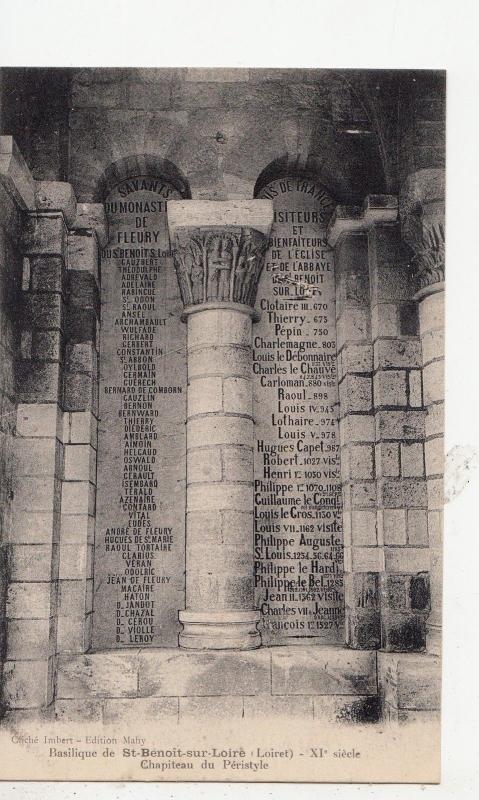 SAVANTS
DU MONASTÈRE
DE
FLEURY
SOUS BENOIT S. Loire
GAUZBERT
THÉODULPHE
ADREVALD
ADELAIRE
RABINCUE
St. ODON
S. RAOUL
ANSEL
ARCHAMBAULT
WULFADE
RICHARD
GERBERT
CONSTANTIN
St. ABBON
OYLBOLD
GERMAIN
GUÉRECH
BERNARD DE COMBORN
GAUZLIN
BERNON
BERNWARD
THIERRY
DIEDERIC
AMBLARD
AIMOIN
HELGAUD
OSWALD
ARNOUL
GERAULT
ISEMBARQ
TERALD
AZENAIRE
GONTARD
VITAL
EUDES
ANDRÉ DE FLEURY
HUGUES DE Ste. MARIE
RAOUL TORTAIRE
CLARIUS
VERAN
ODOLRIC
JEAN DE FLEURY
MACAIRE
HATON
D. JANDOT
D. CHAZAL
D. GEROU
D. VIOLLE
D. LEROY
ROIS DE FRANCE
VISITEURS
ET
BIENFAITEURS
DE L'ÉGLISE
ET DE L'ABBAYE
DE St BENOIT
SUR LOIRE
Clotaire III. 670
Thierry - 673
Pépin - 750
Charlemagne - 803
Louis le Débonnaire
Charles le Chauve
Carloman - 880 visite
Raoul - 898
Louis IV. 945
Lothaire - 974
Louis V. 978
Hugues Capet. 987
Robert - 1027 vis.
Henri 1er 1050 vis.
Philippe 1er 1070-1108
Guillaume le Conq.
Louis le Gros - 1130 v.
Louis VII. 1162 visite
Philippe Auguste
S. Louis. 1254.56.64.66
Philippe le Hardi
Philippe le Bel. 1285
Jean II. 1362 Visite
Charles VII & Jeanne
François 1er 1527 v.
Cliché Imbert - Edition Mahy
Basilique de St-Benoît-sur-Loire (Loiret) - XIe siècle
Chapiteau du Péristyle